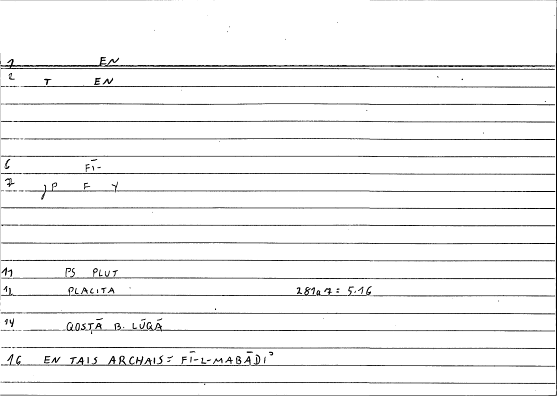 1 EN
2 T EN
6 FĪ-
7 P F Y
11 PS PLUT
12 PLACITA 281a7 = 5.16
14 QOSṬĀ B. LŪQĀ
16 EN TAIS ARCHAIS = FĪ-L-MABĀDIʾ